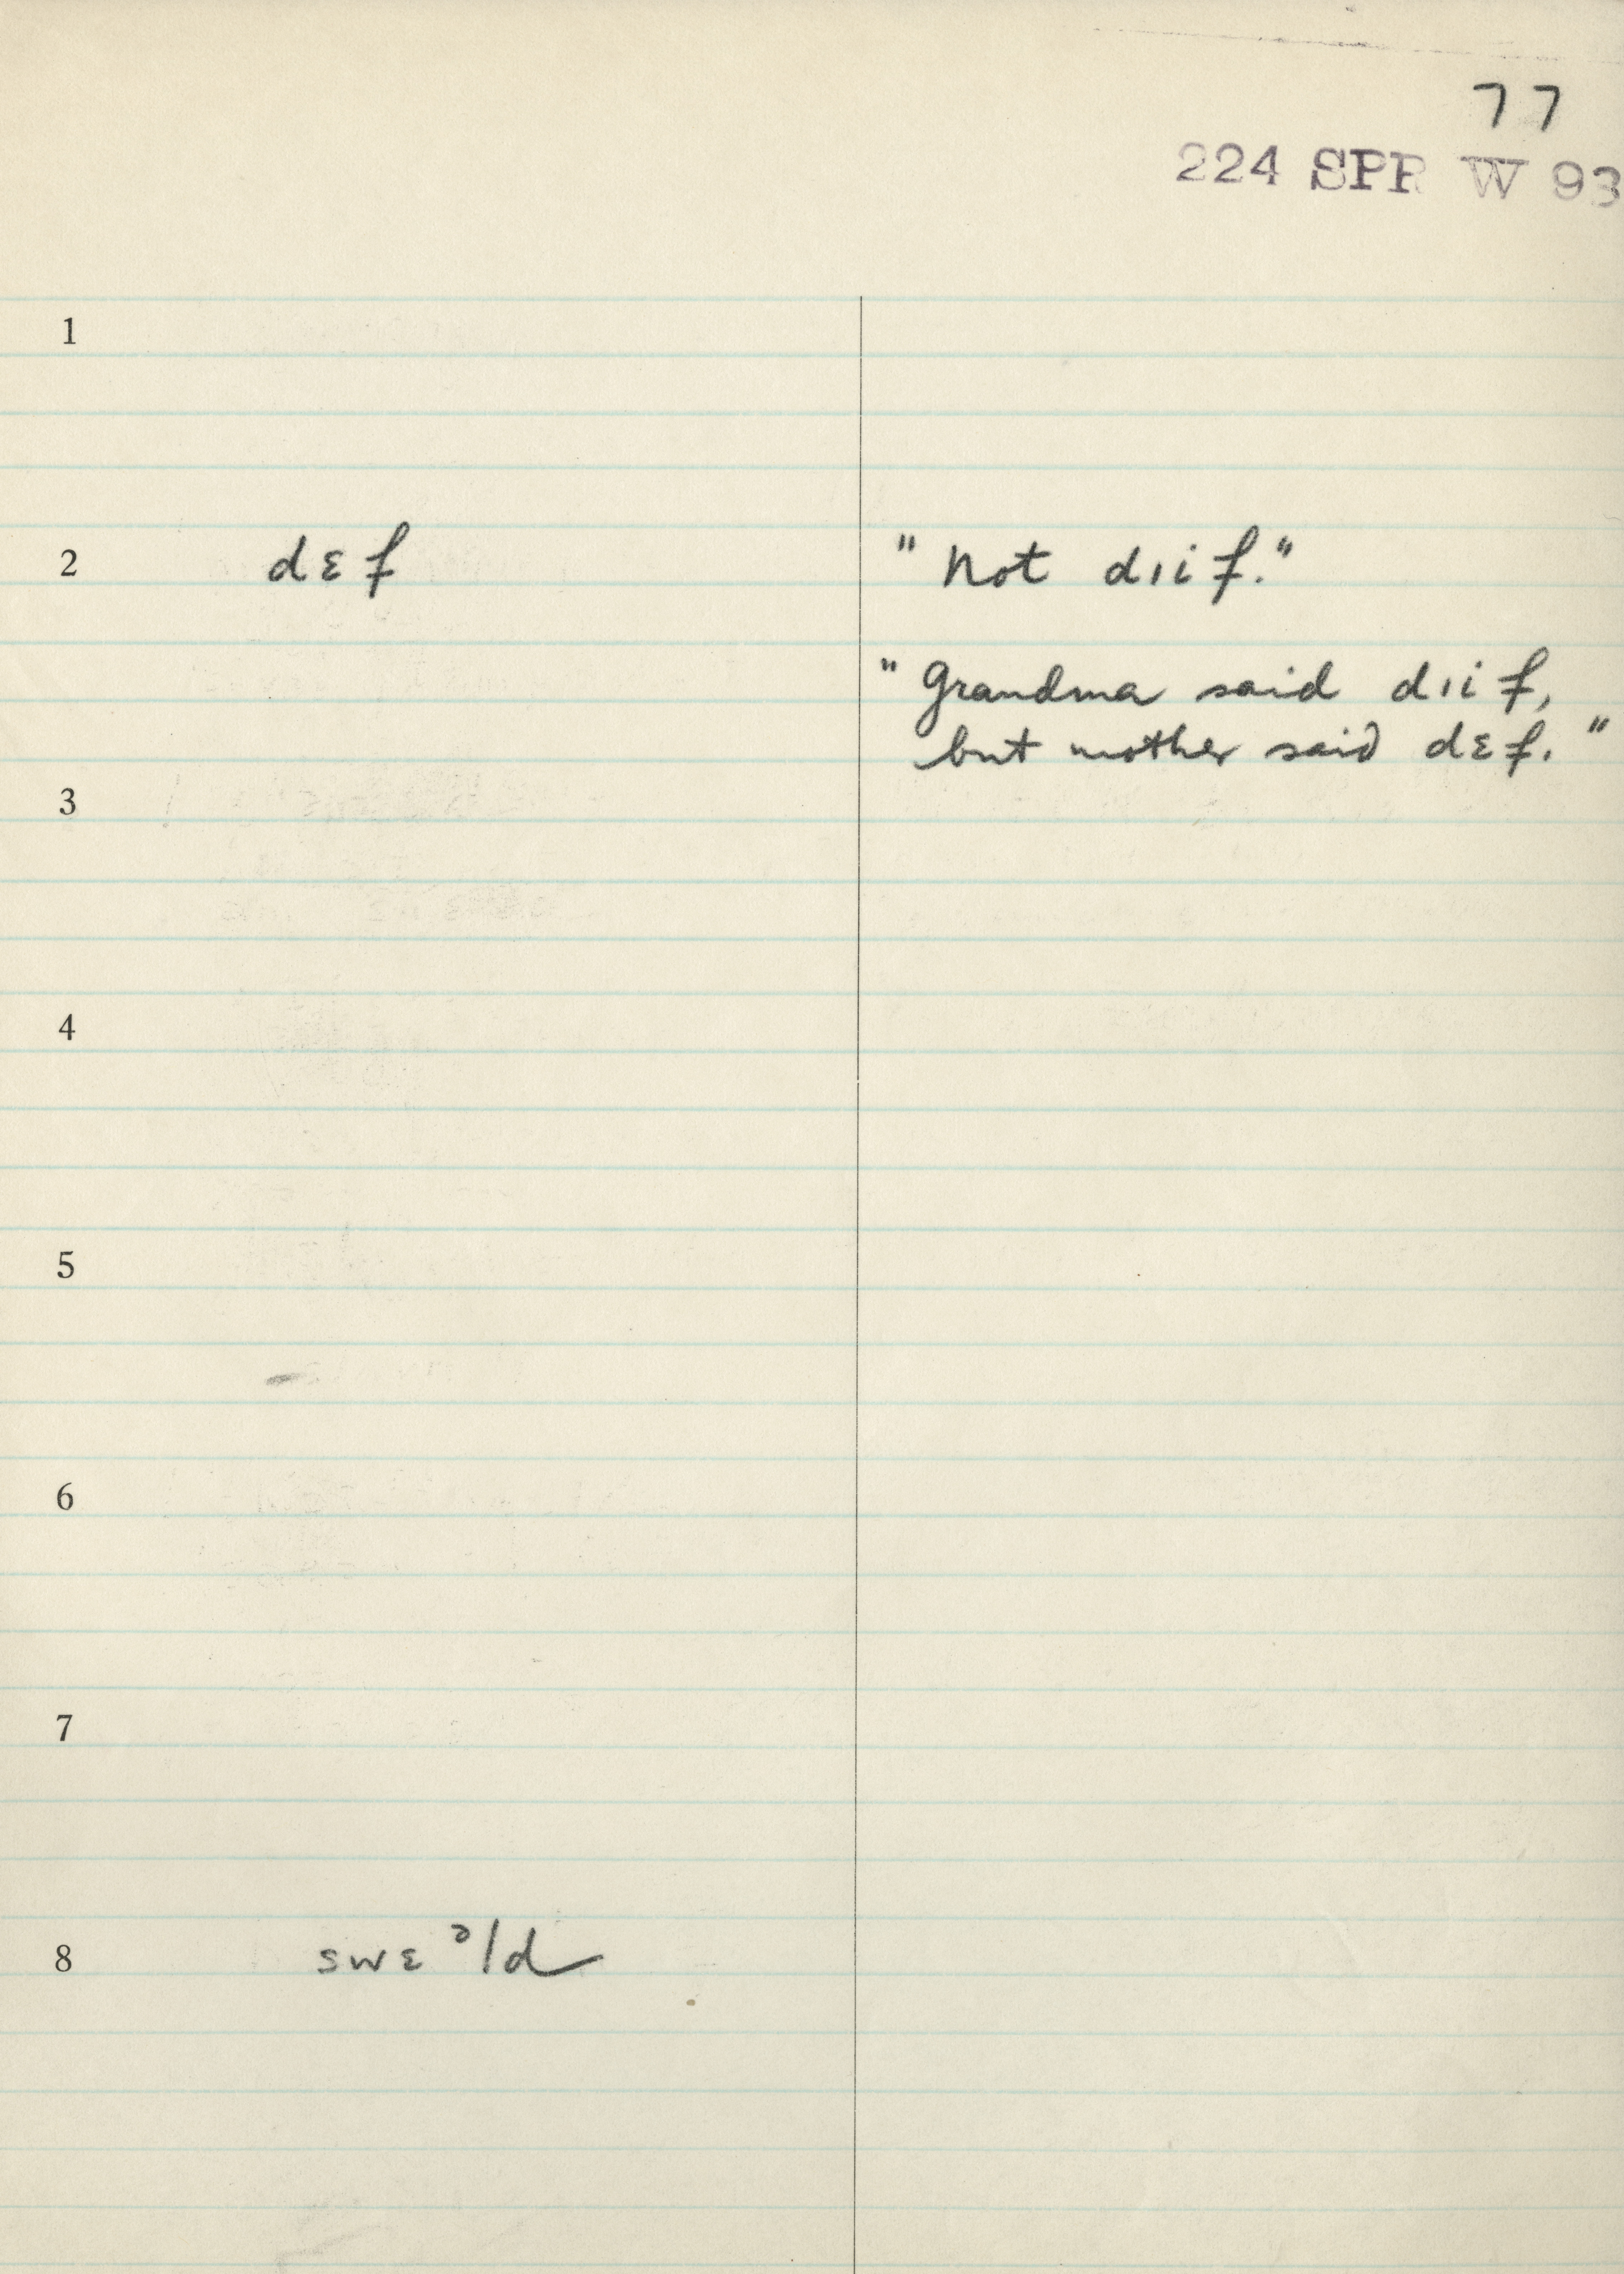 77
224 SPR W 93
1
2 dɛf "Not dıif."
"Grandma said dıif,
but mother said dɛf."
3
4
5
6
7
8 swɛᵊld